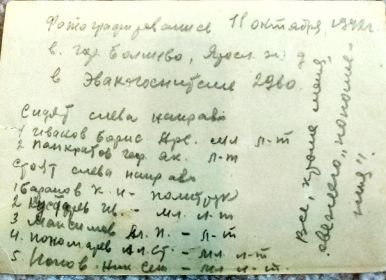 Фотографировались 11 октября 1942г.
в. гор Болшево, Яросл. ж. д
в Эвакогоспитале 2980.
Сидят слева направо
1 Иванов Борис мл л-т
2 Панкратов Гер. Як. л-т
Стоят слева направо
1 Баранов К. И - политрук
2 Ив. мл. л-т
3 Максимов Ал. П. - л-т
4. Пономарев Ал. Ст. - мл л-т
5 Попов. Ник Сем - мл л-т
Все, кроме меня,